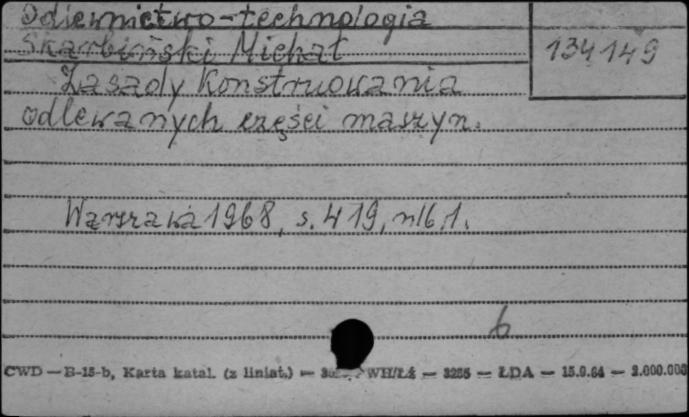 Odlewnictwo-technologia
Skarbiński Michał
134149
Zasady konstruowania
odlewanych części maszyn.
Warszawa 1968, s. 419, nlb.1.
b
CWD — B-15-b, Karta katal. (z liniat.) — WH/Łź — 3255 — ŁDA — 15.9.64 — 2.000.000